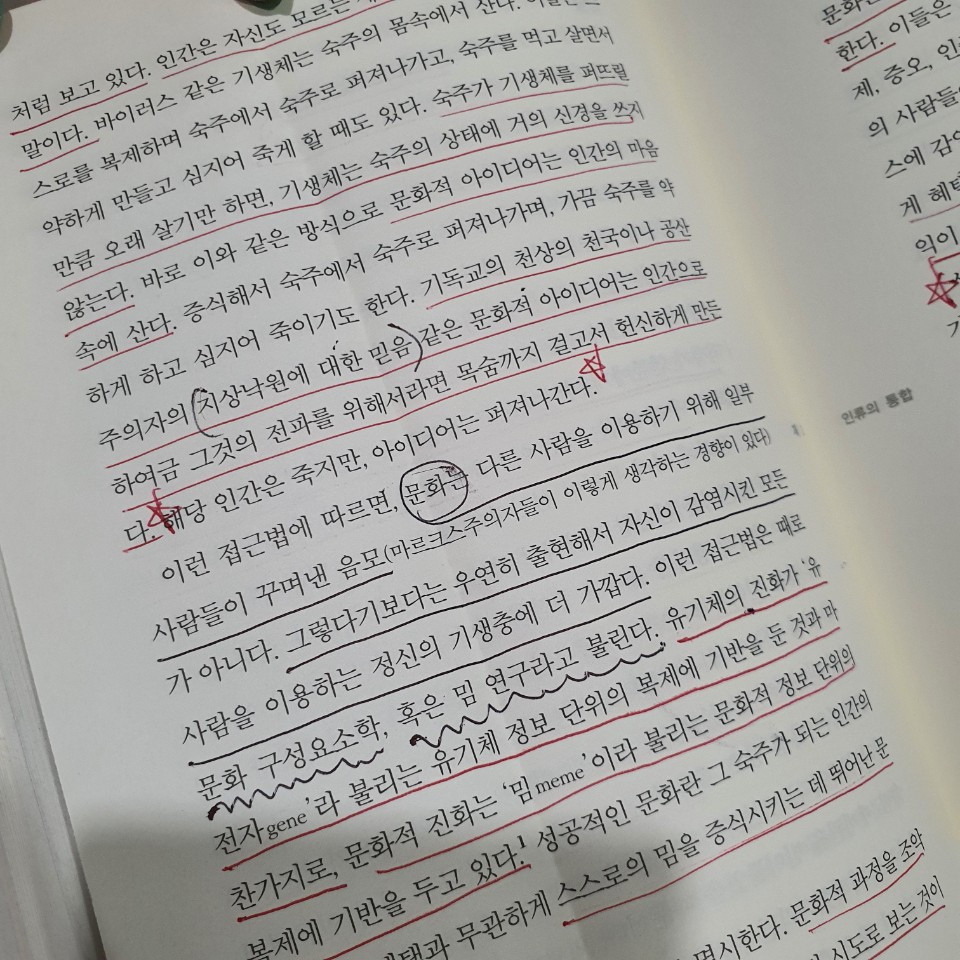 처럼 보고 있다. 인간은 자신도 모르는
말이다. 바이러스 같은 기생체는 숙주의 몸속에서 산다.
스로를 복제하며 숙주에서 숙주로 퍼져나가고, 숙주를 먹고 살면서
약하게 만들고 심지어 죽게 할 때도 있다. 숙주가 기생체를 퍼뜨릴
만큼 오래 살기만 하면, 기생체는 숙주의 상태에 거의 신경을 쓰지
않는다. 바로 이와 같은 방식으로 문화적 아이디어는 인간의 마음
속에 산다. 증식해서 숙주에서 숙주로 퍼져나가며, 가끔 숙주를 약
하게 하고 심지어 죽이기도 한다. 기독교의 천상의 천국이나 공산
주의자의 (지상낙원에 대한 믿음) 같은 문화적 아이디어는 인간으로
하여금 그것의 전파를 위해서라면 목숨까지 걸고서 헌신하게 만든
다. 해당 인간은 죽지만, 아이디어는 퍼져나간다.
이런 접근법에 따르면, 문화는 다른 사람을 이용하기 위해 일부
사람들이 꾸며낸 음모(마르크스주의자들이 이렇게 생각하는 경향이 있다)
가 아니다. 그렇다기보다는 우연히 출현해서 자신이 감염시킨 모든
사람을 이용하는 정신의 기생충에 더 가깝다. 이런 접근법은 때로
문화 구성요소학, 혹은 밈 연구라고 불린다. 유기체의 진화가 ‘유
전자gene’라 불리는 유기체 정보 단위의 복제에 기반을 둔 것과 마
찬가지로, 문화적 진화는 ‘밈meme’이라 불리는 문화적 정보 단위의
복제에 기반을 두고 있다.1 성공적인 문화란 그 숙주가 되는 인간의
무관하게 스스로의 밈을 증식시키는 데 뛰어난 문
명시한다. 문화적 과정을 조악
시도로 보는 것이
한다. 이들은
제, 증오, 인
의 사람들
스에 감
게 혜택
익이
인류의 통합